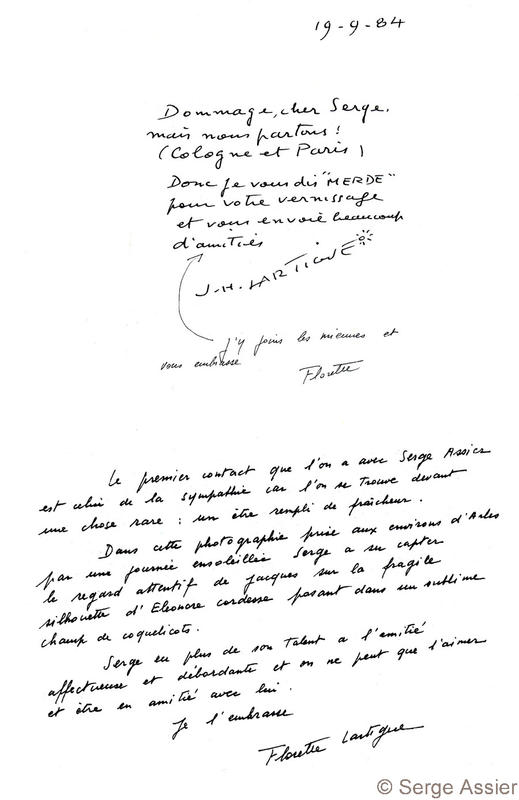 19-9-84
Dommage, cher Serge,
mais nous partons !
(Cologne et Paris)
Donc je vous dis "MERDE"
pour votre vernissage
et vous envoie beaucoup
d'amitiés
J.-H. LARTIGUE
J'y joins les miennes et
vous embrasse
Florette
Le premier contact que l'on a avec Serge Assier
est celui de la sympathie car l'on se trouve devant
une chose rare : un être rempli de fraîcheur.
Dans cette photographie prise aux environs d'Arles
par une journée ensoleillée Serge a su capter
le regard attentif de Jacques sur la fragile
silhouette d'Eleonore cordesse posant dans un sublime
champ de coquelicots.
Serge en plus de son talent a l'amitié
affectueuse et débordante et on ne peut que l'aimer
et être en amitié avec lui.
Je l'embrasse
Florette Lartigue
© Serge Assier